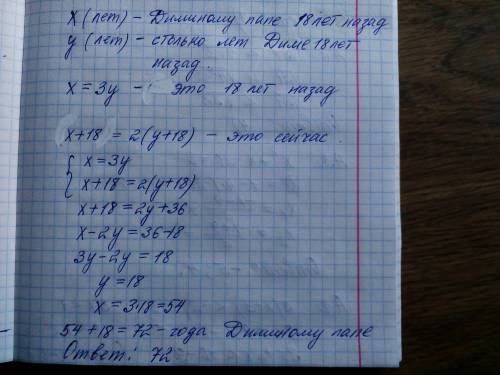 x (лет) – Диминому папе 18 лет назад
y (лет) – столько лет Диме 18 лет
назад.
x = 3y – это 18 лет назад
x+18 = 2(y+18) – это сейчас.
{ x = 3y
x+18 = 2(y+18)
x+18 = 2y+36
x-2y = 36-18
3y-2y = 18
y = 18
x = 3·18 = 54
54+18 = 72 – года Диминому папе
Ответ: 72